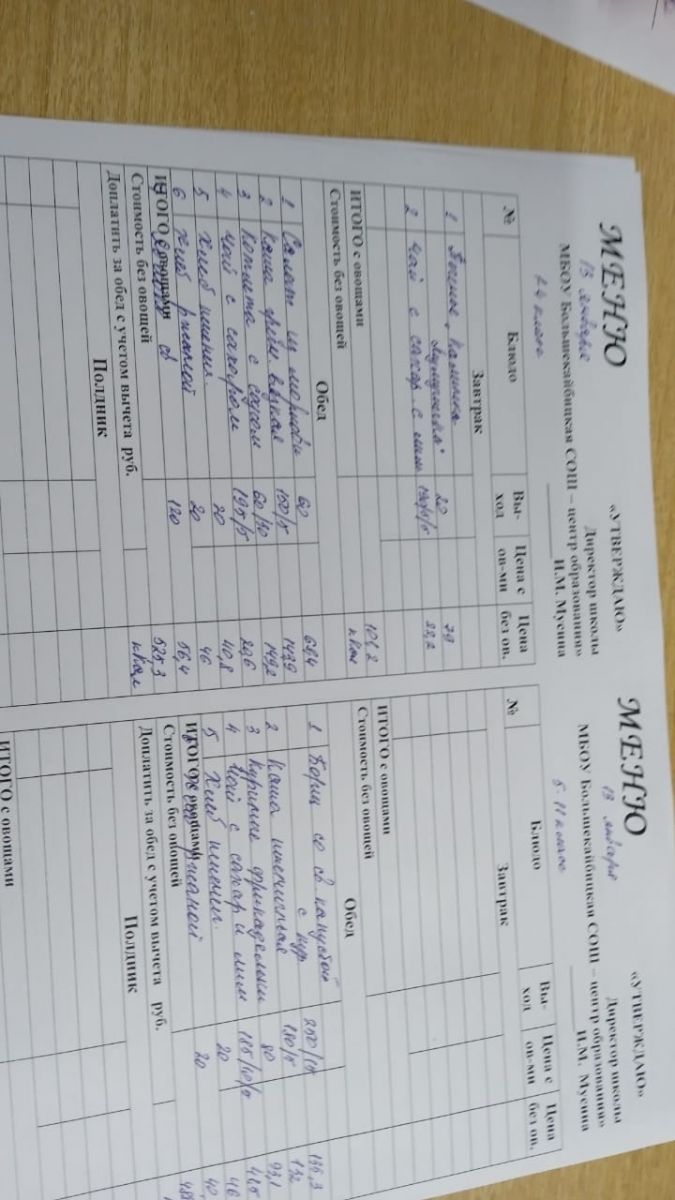 МЕНЮ
13 января
МБОУ Большекайбицкая СОШ – центр образования»
1-4 класс
«УТВЕРЖДАЮ»
Директор школы
И.М. Мусина
№ Блюдо Вы-ход Цена с ов-ми Цена без ов.
Завтрак
1 20 79
2 Чай с сахар. с лим 22,2
ИТОГО с овощами 101,2
Стоимость без овощей ккал
Обед
1 Салат из моркови 60 61,4
2 Каша греч. вязкая 150/5 147,9
3 Котлета с соусом 60/30 149,2
4 Чай с сахаром 195/5 29,6
5 Хлеб пшенич. 20 40,8
6 Хлеб ржаной 20 46
ИТОГО с овощами 120 56,4
Стоимость без овощей 525,3
Доплатить за обед с учетом вычета руб. ккал
Полдник
МЕНЮ
13 января
МБОУ Большекайбицкая СОШ – центр образования»
5-11 класс
«УТВЕРЖДАЮ»
Директор школы
И.М. Мусина
№ Блюдо Вы-ход Цена с ов-ми Цена без ов.
Завтрак
ИТОГО с овощами
Стоимость без овощей
Обед
1 Борщ со св. капустой 250/10 136,3
с кур
2 Каша пшеничная 150/5 132
3 Куриные фрикадельки 80 93,1
4 Чай с сахар и лим 48,5
5 Хлеб пшенич. 20 46
ИТОГО с овощами ржаной 20 40
Стоимость без овощей
Доплатить за обед с учетом вычета руб.
Полдник
ИТОГО с овощами